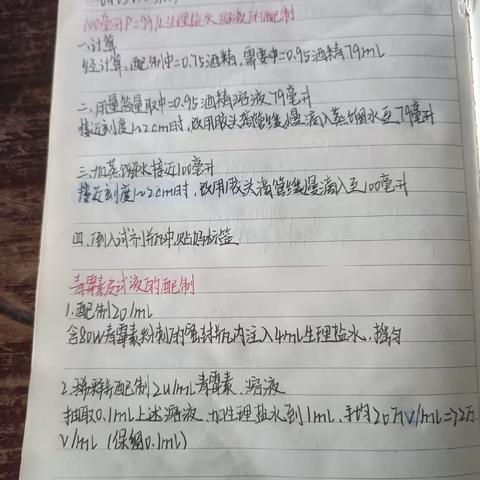 100毫升P=9g/L生理盐水溶液的配制
一.计算
经计算,配制中=0.75酒精,需要中=0.95酒精79mL
二.用量筒量取中=0.95酒精溶液79毫升
接近刻度1~2cm时,改用胶头滴管缓慢滴入蒸馏水至79毫升
三.加蒸馏水接近100毫升
接近刻度1~2cm时,改用胶头滴管缓慢滴入至100毫升
四.倒入试剂瓶中,贴好标签
青霉素皮试液的配制
1.配制20/mL
含80W青霉素粉剂的密封瓶内注入4ml生理盐水,摇匀
2.稀释并配制2u/mL青霉素.溶液
抽取0.1mL上述溶液,加生理盐水到1mL,手均20万V/mL=>2万
V/mL (保留0.1mL)